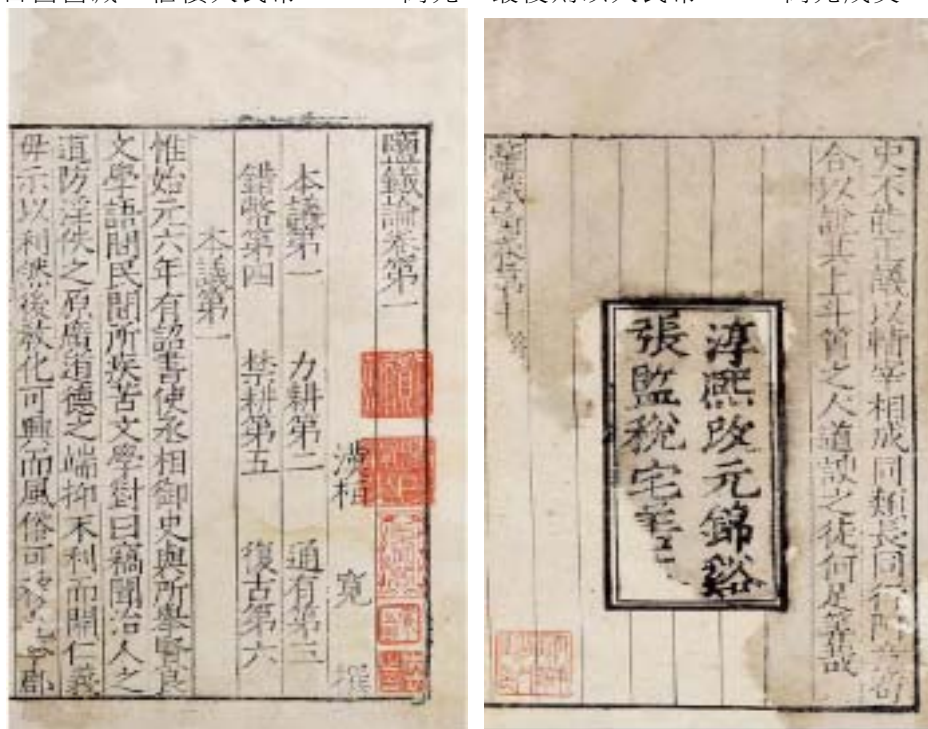 鹽鐵論卷第一
漢桓 寬 撰
本議第一 力耕第二 通有第三
錯幣第四 禁耕第五 復古第六
本議第一
惟始元六年有詔書使丞相御史與所舉賢良
文學語問民間所疾苦文學對曰竊聞治人之
道防淫佚之原廣道德之端抑末利而開仁義
毋示以利然後教化可興而風俗可移
史不能正議以輔宰相成同類長同行阿意苟
合以說其上斗筲之人道諛之徒何足筭哉
淳熙改元錦谿
張監稅宅